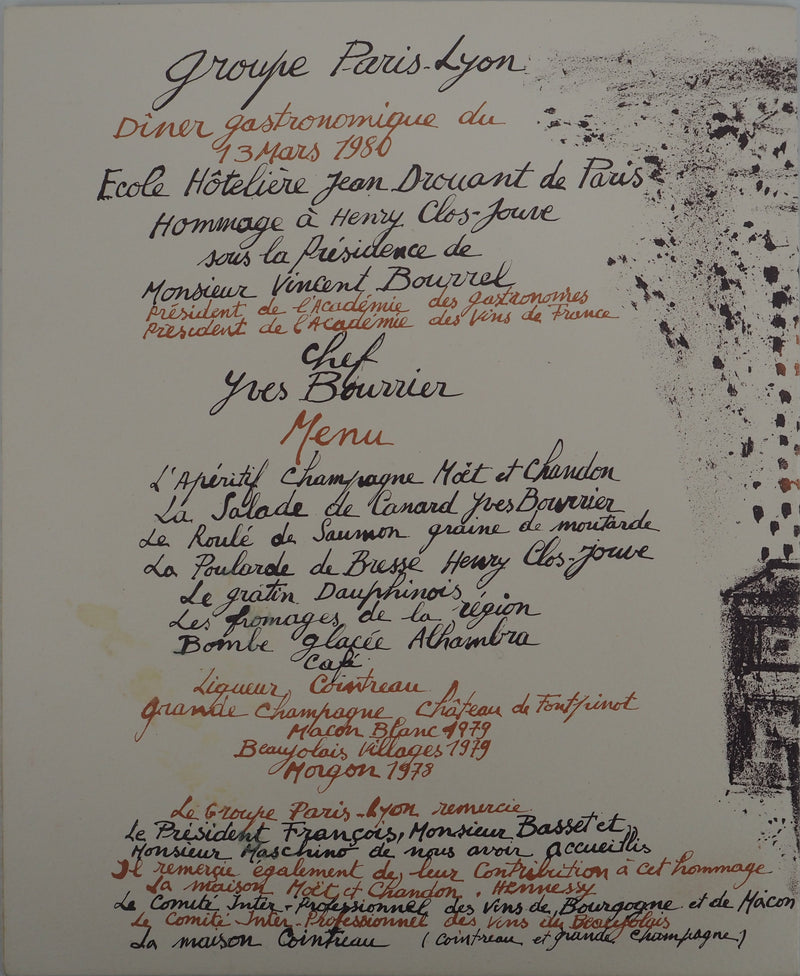 Groupe Paris-Lyon
Dîner gastronomique du
13 Mars 1980
Ecole Hôtelière Jean Drouant de Paris
Hommage à Henry Clos-Jouve
sous la Présidence de
Monsieur Vincent Bourrel
Président de l'Académie des gastronomes
Président de l'Académie des Vins de France
Chef
Yves Bourrier
Menu
L'Apéritif Champagne Moët et Chandon
La Salade de Canard Yves Bourrier
Le Roulé de Saumon graine de moutarde
La Poularde de Bresse Henry Clos-Jouve
Le gratin Dauphinois
Les fromages de la région
Bombe glacée Alhambra
Café
Liqueur Cointreau
grande Champagne Château de Fontpinot
Macon Blanc 1979
Beaujolais Villages 1979
Morgon 1978
Le Groupe Paris-Lyon remercie
Le Président François, Monsieur Basset et
Monsieur Maschino de nous avoir accueillis
Il remercie également de leur Contribution à cet hommage
La maison Moët et Chandon. Hennessy
Le Comité Inter-Professionnel des Vins de Bourgogne et de Macon
Le Comité Inter-Professionnel des Vins du Beaujolais
La maison Cointreau (Cointreau et grande Champagne)